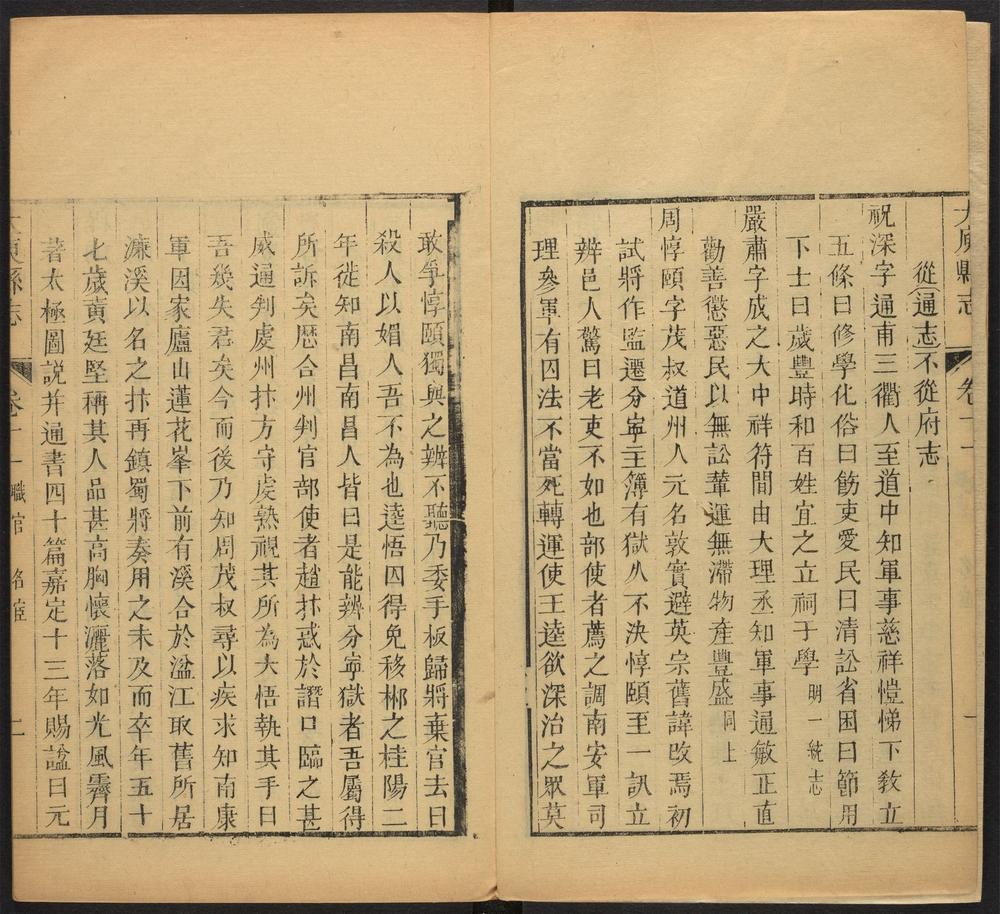 大庾縣志 卷十一 一
從通志不從府志
祝深字通甫三衢人至道中知軍事慈祥愷悌下敎立
五條曰修學化俗曰飭吏愛民曰清訟省囚曰節用
下士曰歲豐時和百姓宜之立祠于學明一統志
嚴肅字成之大中祥符間由大理丞知軍事通敏正直
勸善懲惡民以無訟輦運無滯物產豐盛同上
周惇頤字茂叔道州人元名敦實避英宗舊諱改焉初
試將作監遷分寧主簿有獄久不決惇頤至一訊立
辨邑人驚曰老吏不如也部使者薦之調南安軍司
理參軍有囚法不當死轉運使王逵欲深治之眾莫
敢爭惇頤獨與之辨不聽乃委手板歸將棄官去曰
殺人以媚人吾不為也逵悟囚得免移郴之桂陽二
年徙知南昌南昌人皆曰是能辨分寧獄者吾屬得
所訴矣歷合州判官部使者趙抃惑於譖口臨之甚
威通判虔州抃方守虔熟視其所為大悟執其手曰
吾幾失君矣今而後乃知周茂叔尋以疾求知南康
軍因家廬山蓮花峯下前有溪合於湓江取舊所居
濂溪以名之抃再鎮蜀將奏用之未及而卒年五十
七歲黃廷堅稱其人品甚高胸懷灑落如光風霽月
著太極圖說并通書四十篇嘉定十三年賜諡曰元
大庾縣志 卷十一 職官 名宦 二